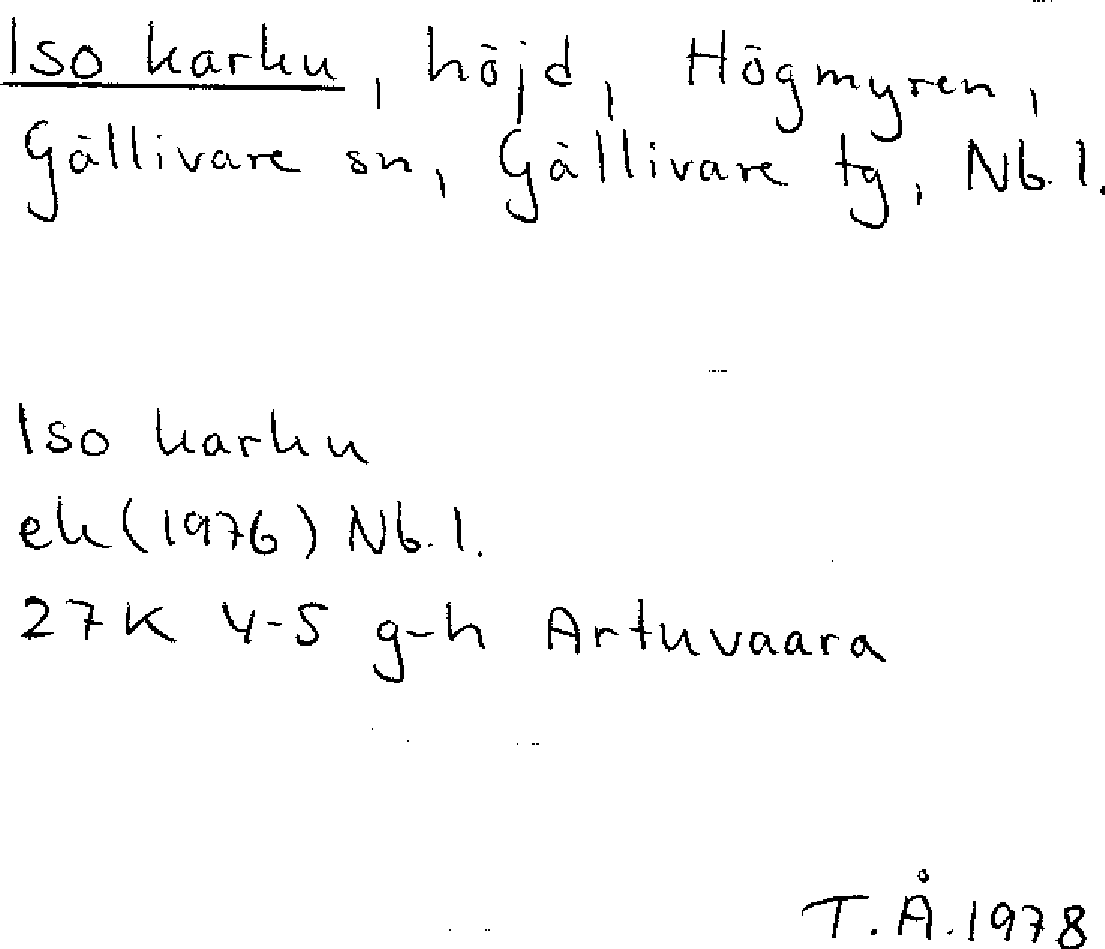 Iso karku, höjd, Högmyren,
Gällivare sn, Gällivare tg, Nb. l.
Iso karku
ek (1976) Nb. l.
27K 4-5 g-h Artuvaara
T.Å. 1978